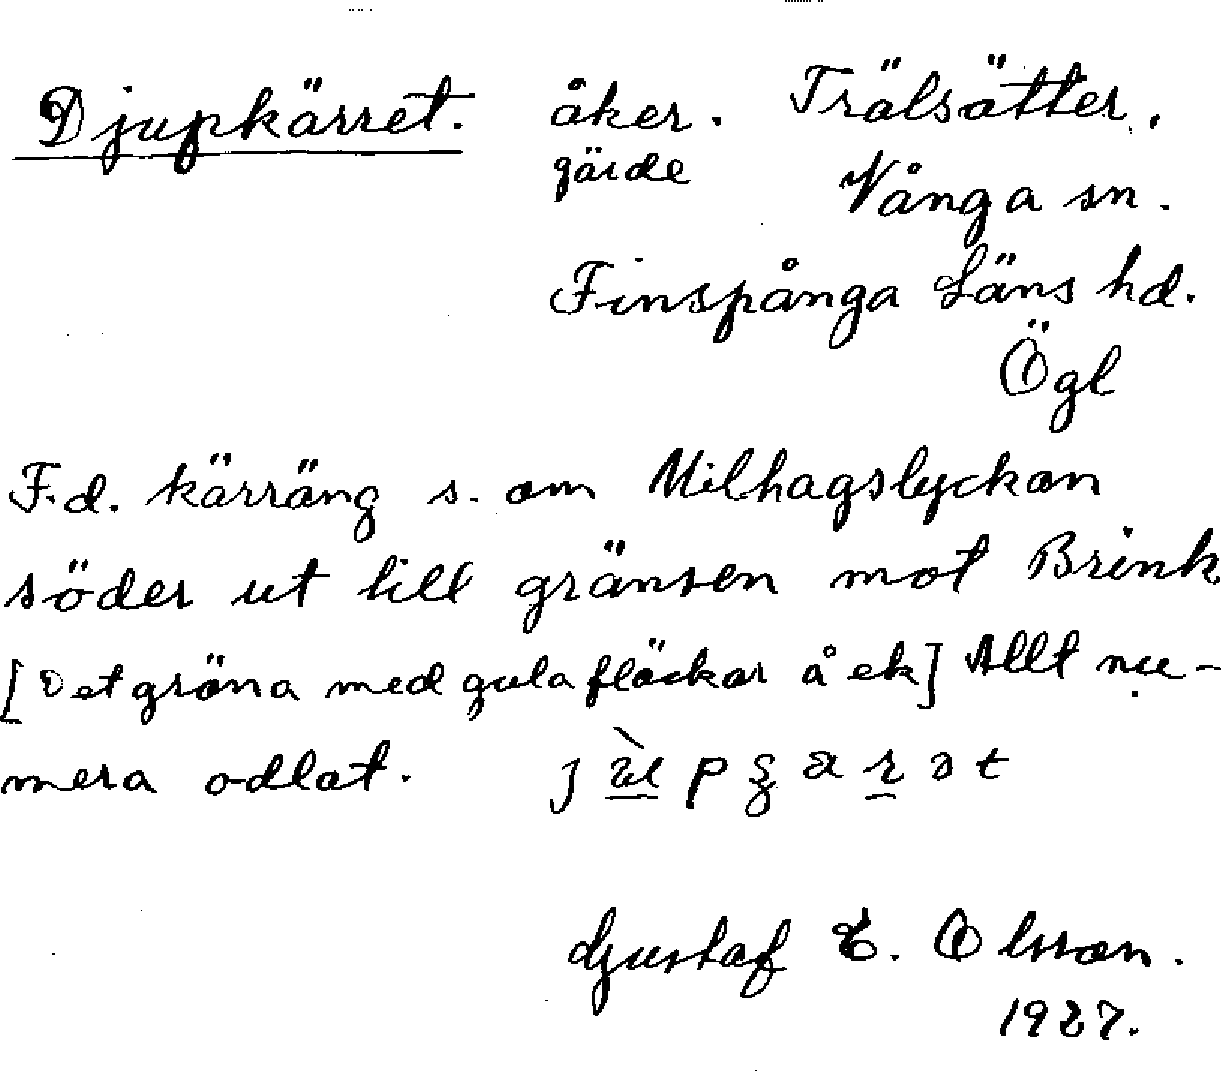 Djupkärret. åker. Trälsätter.
gärde Vånga sn.
Finspånga Läns hd.
Ögl
F.d. kärräng s. om Milhagslyckan
söder ut till gränsen mot Brink
[Det gröna med gula fläckar å ek] Allt nu-
mera odlat.
Gustaf E. Olsson.
1927.